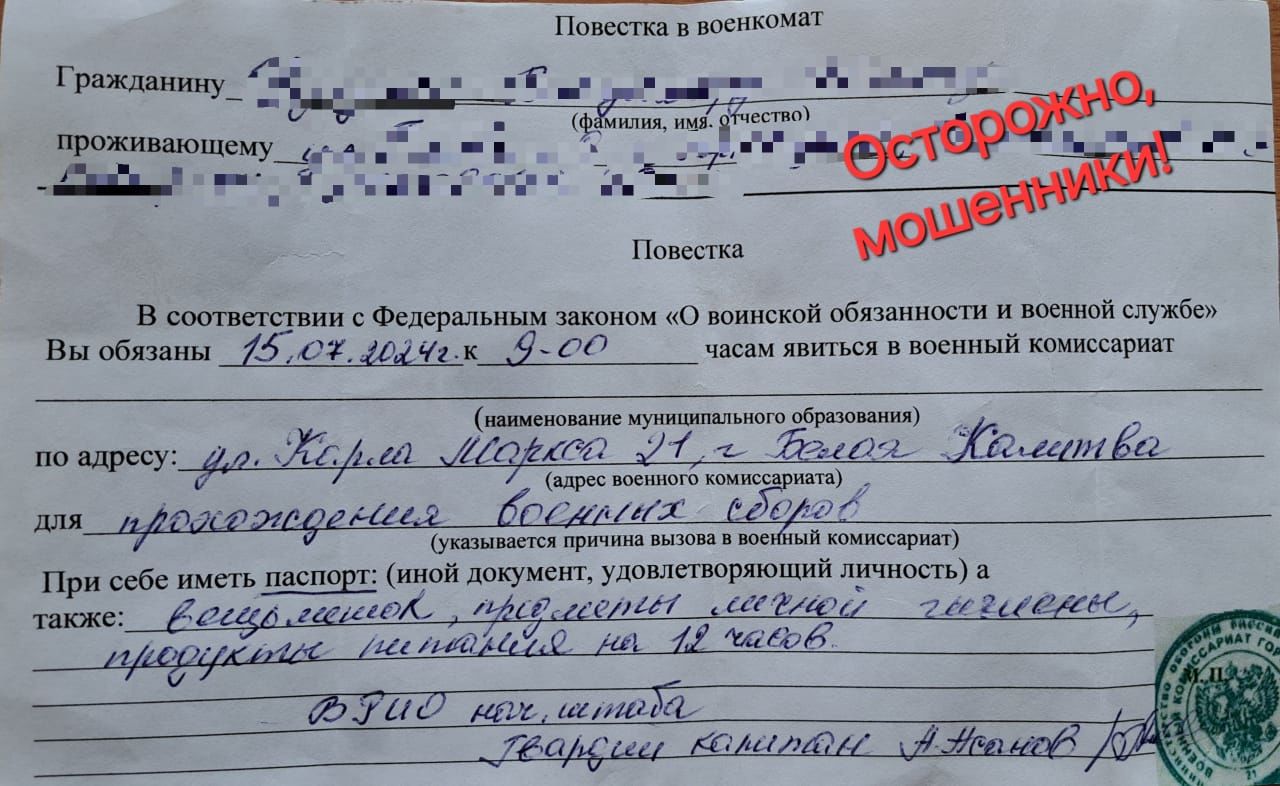 Повестка в военкомат
Гражданину
(фамилия, имя. отчество)
Осторожно,
мошенники!
проживающему
Повестка
В соответствии с Федеральным законом «О воинской обязанности и военной службе»
Вы обязаны 15.07.2024г. к 9-00 часам явиться в военный комиссариат
(наименование муниципального образования)
по адресу: ул. Карла Маркса 21, г Белая Калитва
(адрес военного комиссариата)
для прохождения военных сборов
(указывается причина вызова в военный комиссариат)
При себе иметь паспорт: (иной документ, удовлетворяющий личность) а
также: вещьмешок, предметы личной гигиены,
продукты питания на 12 часов.
М.П.
ВРИО нач. штаба
Гвардии капитан А.Жанов
21